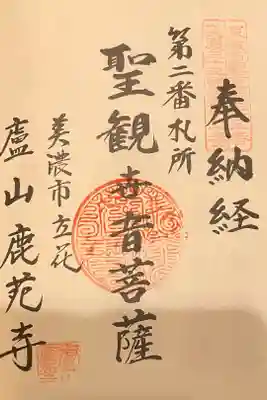 奉納経
第二番札所
聖観世音菩薩
美濃市立花
盧山鹿苑寺